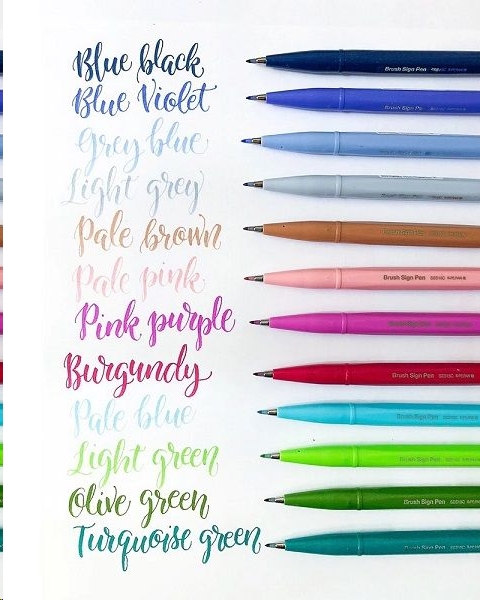 Blue black
Brush Sign Pen
Blue Violet
Brush Sign Pen
Grey blue
Light grey
Pale brown
Pale pink
Brush Sign Pen
Pink purple
Burgundy
Brush Sign Pen
Pale blue
Light green
Olive green
Brush Sign Pen
Turquoise green